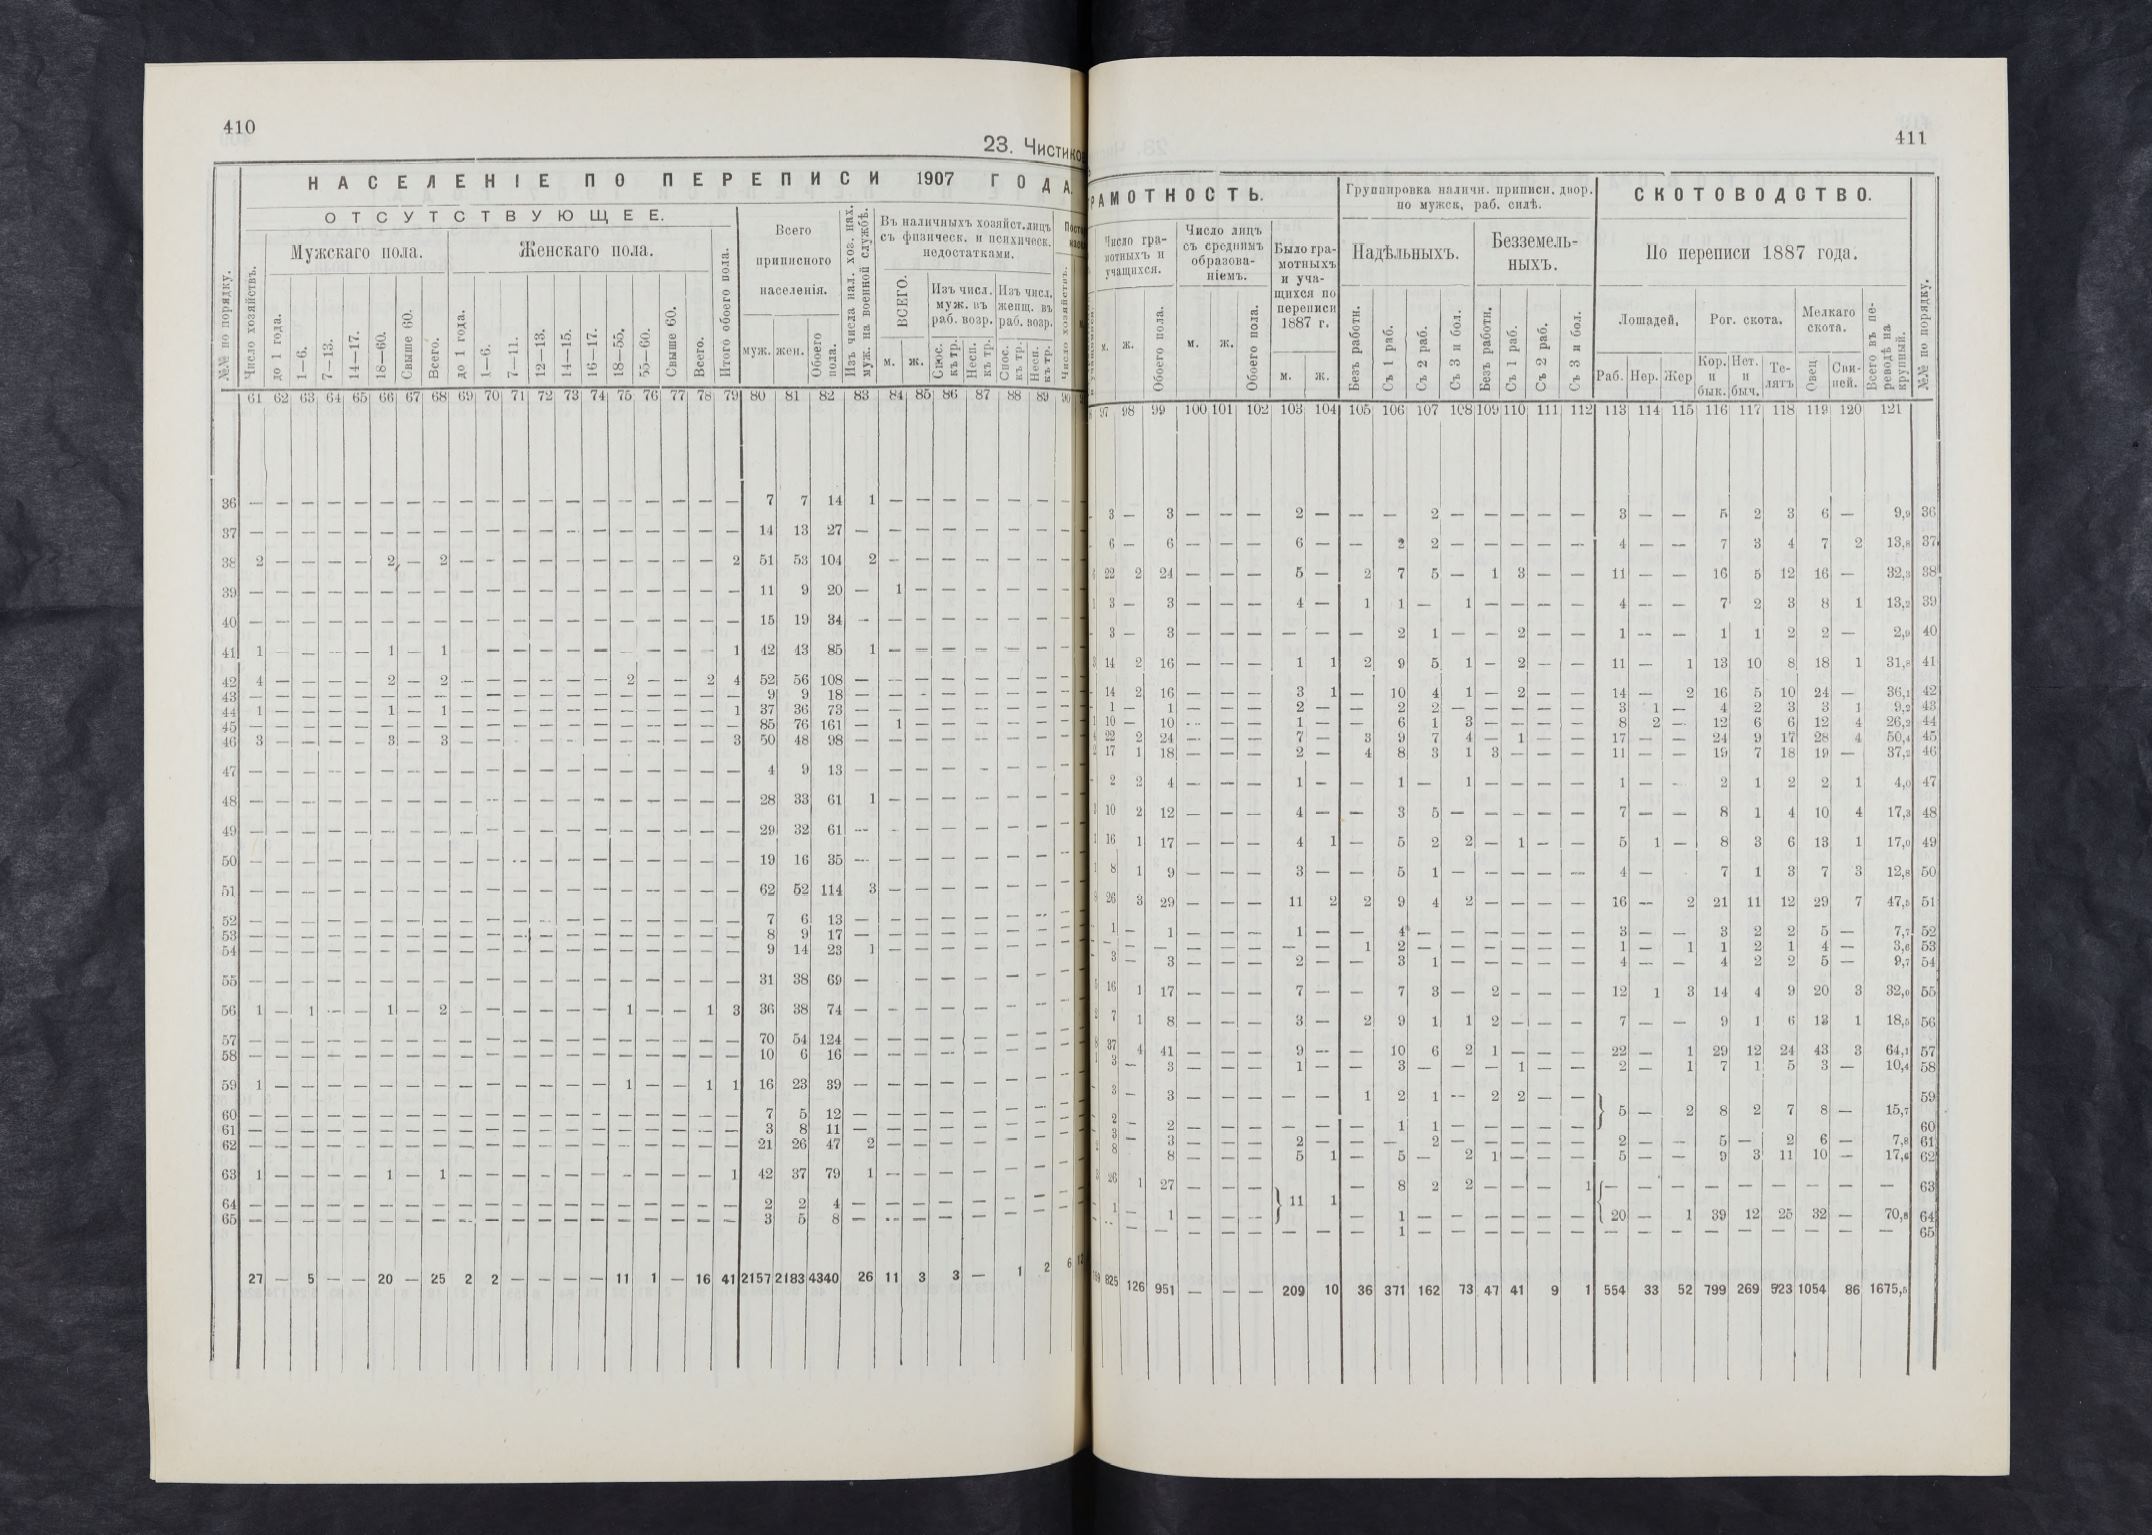 410
23. Чистиков
НАСЕЛЕНІЕ ПО ПЕРЕПИСИ 1907 ГОДА.
ОТСУТСТВУЮЩЕЕ.
Мужскаго пола. Женскаго пола.
№№ по порядку. Число хозяйствъ. до 1 года. 1—6. 7—13. 14—17. 18—60. Свыше 60. Всего. до 1 года. 1—6. 7—11. 12—13. 14—15. 16—17. 18—55. 55—60. Свыше 60. Всего. Итого обоего пола.
Всего приписного населенія.
муж. жен. Обоего пола.
Изъ числа нал. хоз. нах. муж. на военной службѣ.
Въ наличныхъ хозяйст. лицъ съ физическ. и психическ. недостатками.
ВСЕГО. м. ж.
Изъ числ. муж. въ раб. возр. Спос. къ тр. Несп. къ тр.
Изъ числ. женщ. въ раб. возр. Спос. къ тр. Несп. къ тр.
Число хозяйствъ.
61 62 63 64 65 66 67 68 69 70 71 72 73 74 75 76 77 78 79 80 81 82 83 84 85 86 87 88 89 90
36 — — — — — — — — — — — — — — — — — — — 7 7 14 1 — — — — — — —
37 — — — — — — — — — — — — — — — — — — — 14 13 27 — — — — — — — —
38 2 — — — — 2 — 2 — — — — — — — — — — 2 51 53 104 2 — — — — — — —
39 — — — — — — — — — — — — — — — — — — — 11 9 20 — 1 — — — — — —
40 — — — — — — — — — — — — — — — — — — — 15 19 34 — — — — — — — —
41 1 — — — — 1 — 1 — — — — — — — — — — 1 42 43 85 1 — — — — — — —
42 4 — — — — 2 — 2 — — — — — — 2 — — 2 4 52 56 108 — — — — — — — —
43 — — — — — — — — — — — — — — — — — — — 9 9 18 — — — — — — — —
44 1 — — — — 1 — 1 — — — — — — — — — — 1 37 36 73 — — — — — — — —
45 — — — — — — — — — — — — — — — — — — — 85 76 161 — 1 — — — — — —
46 3 — — — — 3 — 3 — — — — — — — — — — 3 50 48 98 — — — — — — — —
47 — — — — — — — — — — — — — — — — — — — 4 9 13 — — — — — — — —
48 — — — — — — — — — — — — — — — — — — — 28 33 61 1 — — — — — — —
49 — — — — — — — — — — — — — — — — — — — 29 32 61 — — — — — — — —
50 — — — — — — — — — — — — — — — — — — — 19 16 35 — — — — — — — —
51 — — — — — — — — — — — — — — — — — — — 62 52 114 3 — — — — — — —
52 — — — — — — — — — — — — — — — — — — — 7 6 13 — — — — — — — —
53 — — — — — — — — — — — — — — — — — — — 8 9 17 — — — — — — — —
54 — — — — — — — — — — — — — — — — — — — 9 14 23 1 — — — — — — —
55 — — — — — — — — — — — — — — — — — — — 31 38 69 — — — — — — —
56 1 — 1 — — 1 — 2 — — — — — — 1 — — 1 3 36 38 74 — — — — — — — —
57 — — — — — — — — — — — — — — — — — — — 70 54 124 — — — — — — — —
58 — — — — — — — — — — — — — — — — — — — 10 6 16 — — — — — — — —
59 1 — — — — — — — — — — — — — 1 — — 1 1 16 23 39 — — — — — — — —
60 — — — — — — — — — — — — — — — — — — — 7 5 12 — — — — — — — —
61 — — — — — — — — — — — — — — — — — — — 3 8 11 — — — — — — — —
62 — — — — — — — — — — — — — — — — — — — 21 26 47 2 — — — — — — —
63 1 — — — — 1 — 1 — — — — — — — — — — 1 42 37 79 1 — — — — — — —
64 — — — — — — — — — — — — — — — — — — — 2 2 4 — — — — — — — —
65 — — — — — — — — — — — — — — — — — — — 3 5 8 — — — — — — — —
27 — 5 — — 20 — 25 2 2 — — — — 11 1 — 16 41 2157 2183 4340 26 11 3 3 — 1 2 6
411
РАМОТНОСТЬ.
Число грамотныхъ и учащихся.
м. ж. Обоего пола.
Число лицъ съ среднимъ образованіемъ.
м. ж. Обоего пола.
Было грамотныхъ и учащихся по переписи 1887 г.
м. ж.
Группировка наличн. приписн. двор. по мужск. раб. силѣ.
Надѣльныхъ. Безземельныхъ.
Безъ работн. Съ 1 раб. Съ 2 раб. Съ 3 и бол. Безъ работн. Съ 1 раб. Съ 2 раб. Съ 3 и бол.
СКОТОВОДСТВО.
По переписи 1887 года.
Лошадей. Рог. скота. Мелкаго скота. Всего въ переводѣ на крупный. №№ по порядку.
Раб. Нер. Жер Кор. и бык. Нет. и быч. Телятъ Овец Свиней.
97 98 99 100 101 102 103 104 105 106 107 108 109 110 111 112 113 114 115 116 117 118 119 120 121
3 — 3 — — — 2 — — — 2 — — — — — 3 — — 5 2 3 6 — 9,9 36
6 — 6 — — — 6 — — 2 2 — — — — — 4 — — 7 3 4 7 2 13,8 37
22 2 24 — — — 5 — 2 7 5 — 1 3 — — 11 — — 16 5 12 16 — 32,3 38
3 — 3 — — — 4 — 1 1 — 1 — — — — 4 — — 7 2 3 8 1 13,2 39
3 — 3 — — — — — — 2 1 — — 2 — — 1 — — 1 1 2 2 — 2,9 40
14 2 16 — — — 1 1 2 9 5 1 — 2 — — 11 — 1 13 10 8 18 1 31,8 41
14 2 16 — — — 3 1 — 10 4 1 — 2 — — 14 — 2 16 5 10 24 — 36,1 42
1 — 1 — — — 2 — — 2 2 — — — — — 3 1 — 4 2 3 3 1 9,2 43
10 — 10 — — — 1 — — 6 1 3 — — — — 8 2 — 12 6 6 12 4 26,2 44
22 2 24 — — — 7 — 3 9 7 4 — 1 — — 17 — — 24 9 17 28 4 50,4 45
17 1 18 — — — 2 — 4 8 3 1 3 — — — 11 — — 19 7 18 19 — 37,2 46
2 2 4 — — — 1 — — 1 — 1 — — — — 1 — — 2 1 2 2 1 4,0 47
10 2 12 — — — 4 — — 3 5 — — — — — 7 — — 8 1 4 10 4 17,3 48
16 1 17 — — — 4 1 — 5 2 2 — 1 — — 5 1 — 8 3 6 13 1 17,0 49
8 1 9 — — — 3 — — 5 1 — — — — — 4 — 7 1 3 7 3 12,8 50
26 3 29 — — — 11 2 2 9 4 2 — — — — 16 — 2 21 11 12 29 7 47,5 51
1 — 1 — — — 1 — — 4 — — — — — — 3 — — 3 2 2 5 — 7,7 52
— — — — — — — — 1 2 — — — — — — 1 — 1 1 2 1 4 — 3,6 53
3 — 3 — — — 2 — — 3 1 — — — — — 4 — — 4 2 2 5 — 9,7 54
16 1 17 — — — 7 — — 7 3 — 2 — — — 12 1 3 14 4 9 20 3 32,0 55
7 1 8 — — — 3 — 2 9 1 1 2 — — — 7 — — 9 1 6 13 1 18,5 56
37 4 41 — — — 9 — — 10 6 2 1 — — — 22 — 1 29 12 24 43 3 64,1 57
3 — 3 — — — 1 — — 3 — — — 1 — — 2 — 1 7 1 5 3 — 10,4 58
3 — 3 — — — — — 1 2 1 — 2 2 — — 59
} 5 — 2 8 2 7 8 — 15,7
2 — 2 — — — — — — 1 1 — — — — — 60
3 — 3 — — — 2 — — — 2 — — — — — 2 — — 5 — 2 6 — 7,8 61
8 8 — — — 5 1 — 5 — 2 1 — — — 5 — — 9 3 11 10 — 17,6 62
26 1 27 — — — — 8 2 2 — — — 1 { — — — — — — — — — 63
} 11 1
1 — 1 — — — — 1 — — — — — — 20 — 1 39 12 25 32 — 70,8 64
— — — — — — — — — 1 — — — — — — — — — — — — — — — 65
825 126 951 — — — 209 10 36 371 162 73 47 41 9 1 554 33 52 799 269 523 1054 86 1675,5